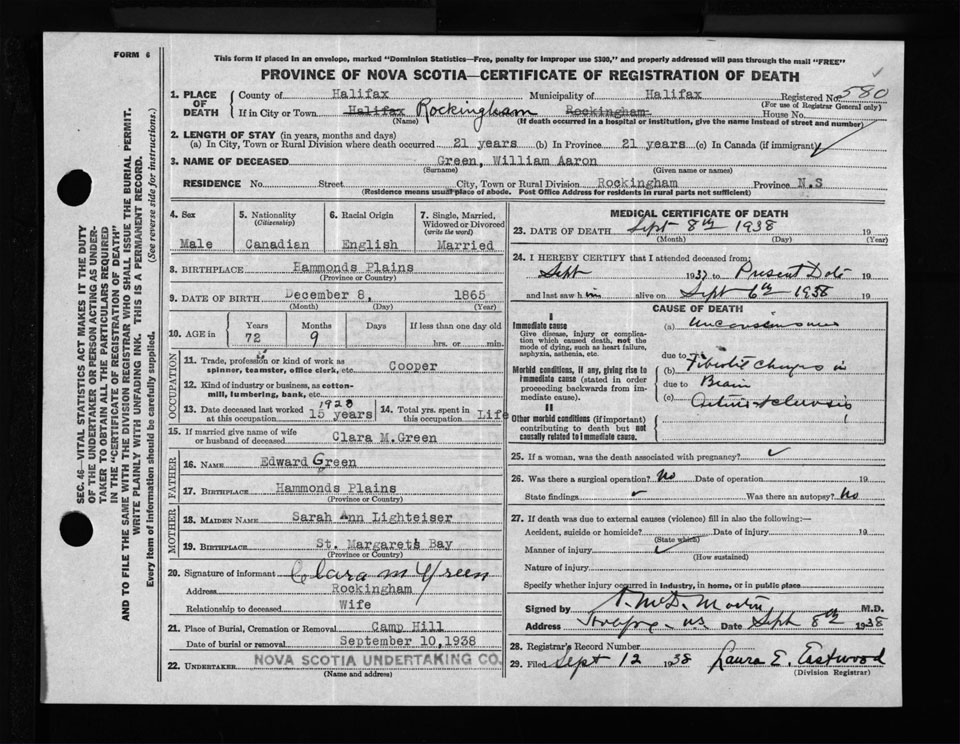 FORM 6
This form if placed in an envelope, marked "Dominion Statistics—Free, penalty for improper use $300," and properly addressed will pass through the mail "FREE"
PROVINCE OF NOVA SCOTIA—CERTIFICATE OF REGISTRATION OF DEATH
1. PLACE OF DEATH
County of Halifax Municipality of Halifax Registered No. 580
(For use of Registrar General only)
If in City or Town Halifax Rockingham Rockingham House No.
(Name) (If death occurred in a hospital or institution, give the name instead of street and number)
2. LENGTH OF STAY (in years, months and days)
(a) In City, Town or Rural Division where death occurred 21 years (b) In Province 21 years (c) In Canada (if immigrant)
3. NAME OF DECEASED Green, William Aaron
(Surname) (Given name or names)
RESIDENCE No. Street City, Town or Rural Division Rockingham Province N.S
(Residence means usual place of abode. Post Office Address for residents in rural parts not sufficient)
4. Sex
Male
5. Nationality
(Citizenship)
Canadian
6. Racial Origin
English
7. Single, Married, Widowed or Divorced
(write the word)
Married
8. BIRTHPLACE Hammonds Plains
(Province or Country)
9. DATE OF BIRTH December 8, 1865
(Month) (Day) (Year)
10. AGE in Years Months Days If less than one day old
72 9 hrs. or min.
OCCUPATION
11. Trade, profession or kind of work as
spinner, teamster, office clerk, etc. Cooper
12. Kind of industry or business, as cotton-
mill, lumbering, bank, etc.
13. Date deceased last worked at this occupation 1923 15 years
14. Total yrs. spent in this occupation Life
15. If married give name of wife
or husband of deceased Clara M. Green
FATHER
16. NAME Edward Green
17. BIRTHPLACE Hammonds Plains
(Province or Country)
MOTHER
18. MAIDEN NAME Sarah Ann Lighteiser
19. BIRTHPLACE St. Margarets Bay
(Province or Country)
20. Signature of informant Clara M Green
Address Rockingham
Relationship to deceased Wife
21. Place of Burial, Cremation or Removal Camp Hill
Date of burial or removal September 10, 1938
22. UNDERTAKER NOVA SCOTIA UNDERTAKING CO.
(Name and address)
MEDICAL CERTIFICATE OF DEATH
23. DATE OF DEATH Sept 8th 1938 19
(Month) (Day) (Year)
24. I HEREBY CERTIFY that I attended deceased from:
Sept 1937 to Present Date 19
and last saw him alive on Sept 6th 1938 19
CAUSE OF DEATH
I
Immediate cause
Give disease, injury or complication which caused death, not the mode of dying, such as heart failure, asphyxia, asthenia, etc.
Morbid conditions, if any, giving rise to immediate cause (stated in order proceeding backwards from immediate cause).
II
Other morbid conditions (if important) contributing to death but not causally related to immediate cause.
(a) Unconsciousness
due to
(b) Fibrotic changes in
due to Brain
(c) Arteriosclerosis
25. If a woman, was the death associated with pregnancy?
26. Was there a surgical operation? No Date of operation 19
State findings Was there an autopsy? No
27. If death was due to external causes (violence) fill in also the following:—
Accident, suicide or homicide? Date of injury 19
(State which)
Manner of injury
(How sustained)
Nature of injury
Specify whether injury occurred in industry, in home, or in public place
Signed by M.D.
Address N.S Date Sept 8th 1938
28. Registrar's Record Number
29. Filed Sept 12 1938 Laura E. Eastwood
(Division Registrar)
SEC. 46—VITAL STATISTICS ACT MAKES IT THE DUTY
OF THE UNDERTAKER OR PERSON ACTING AS UNDER-
TAKER TO OBTAIN ALL THE PARTICULARS REQUIRED
IN THE "CERTIFICATE OF REGISTRATION OF DEATH"
AND TO FILE THE SAME WITH THE DIVISION REGISTRAR WHO SHALL ISSUE THE BURIAL PERMIT.
WRITE PLAINLY WITH UNFADING INK. THIS IS A PERMANENT RECORD.
Every item of information should be carefully supplied. (See reverse side for instructions.)